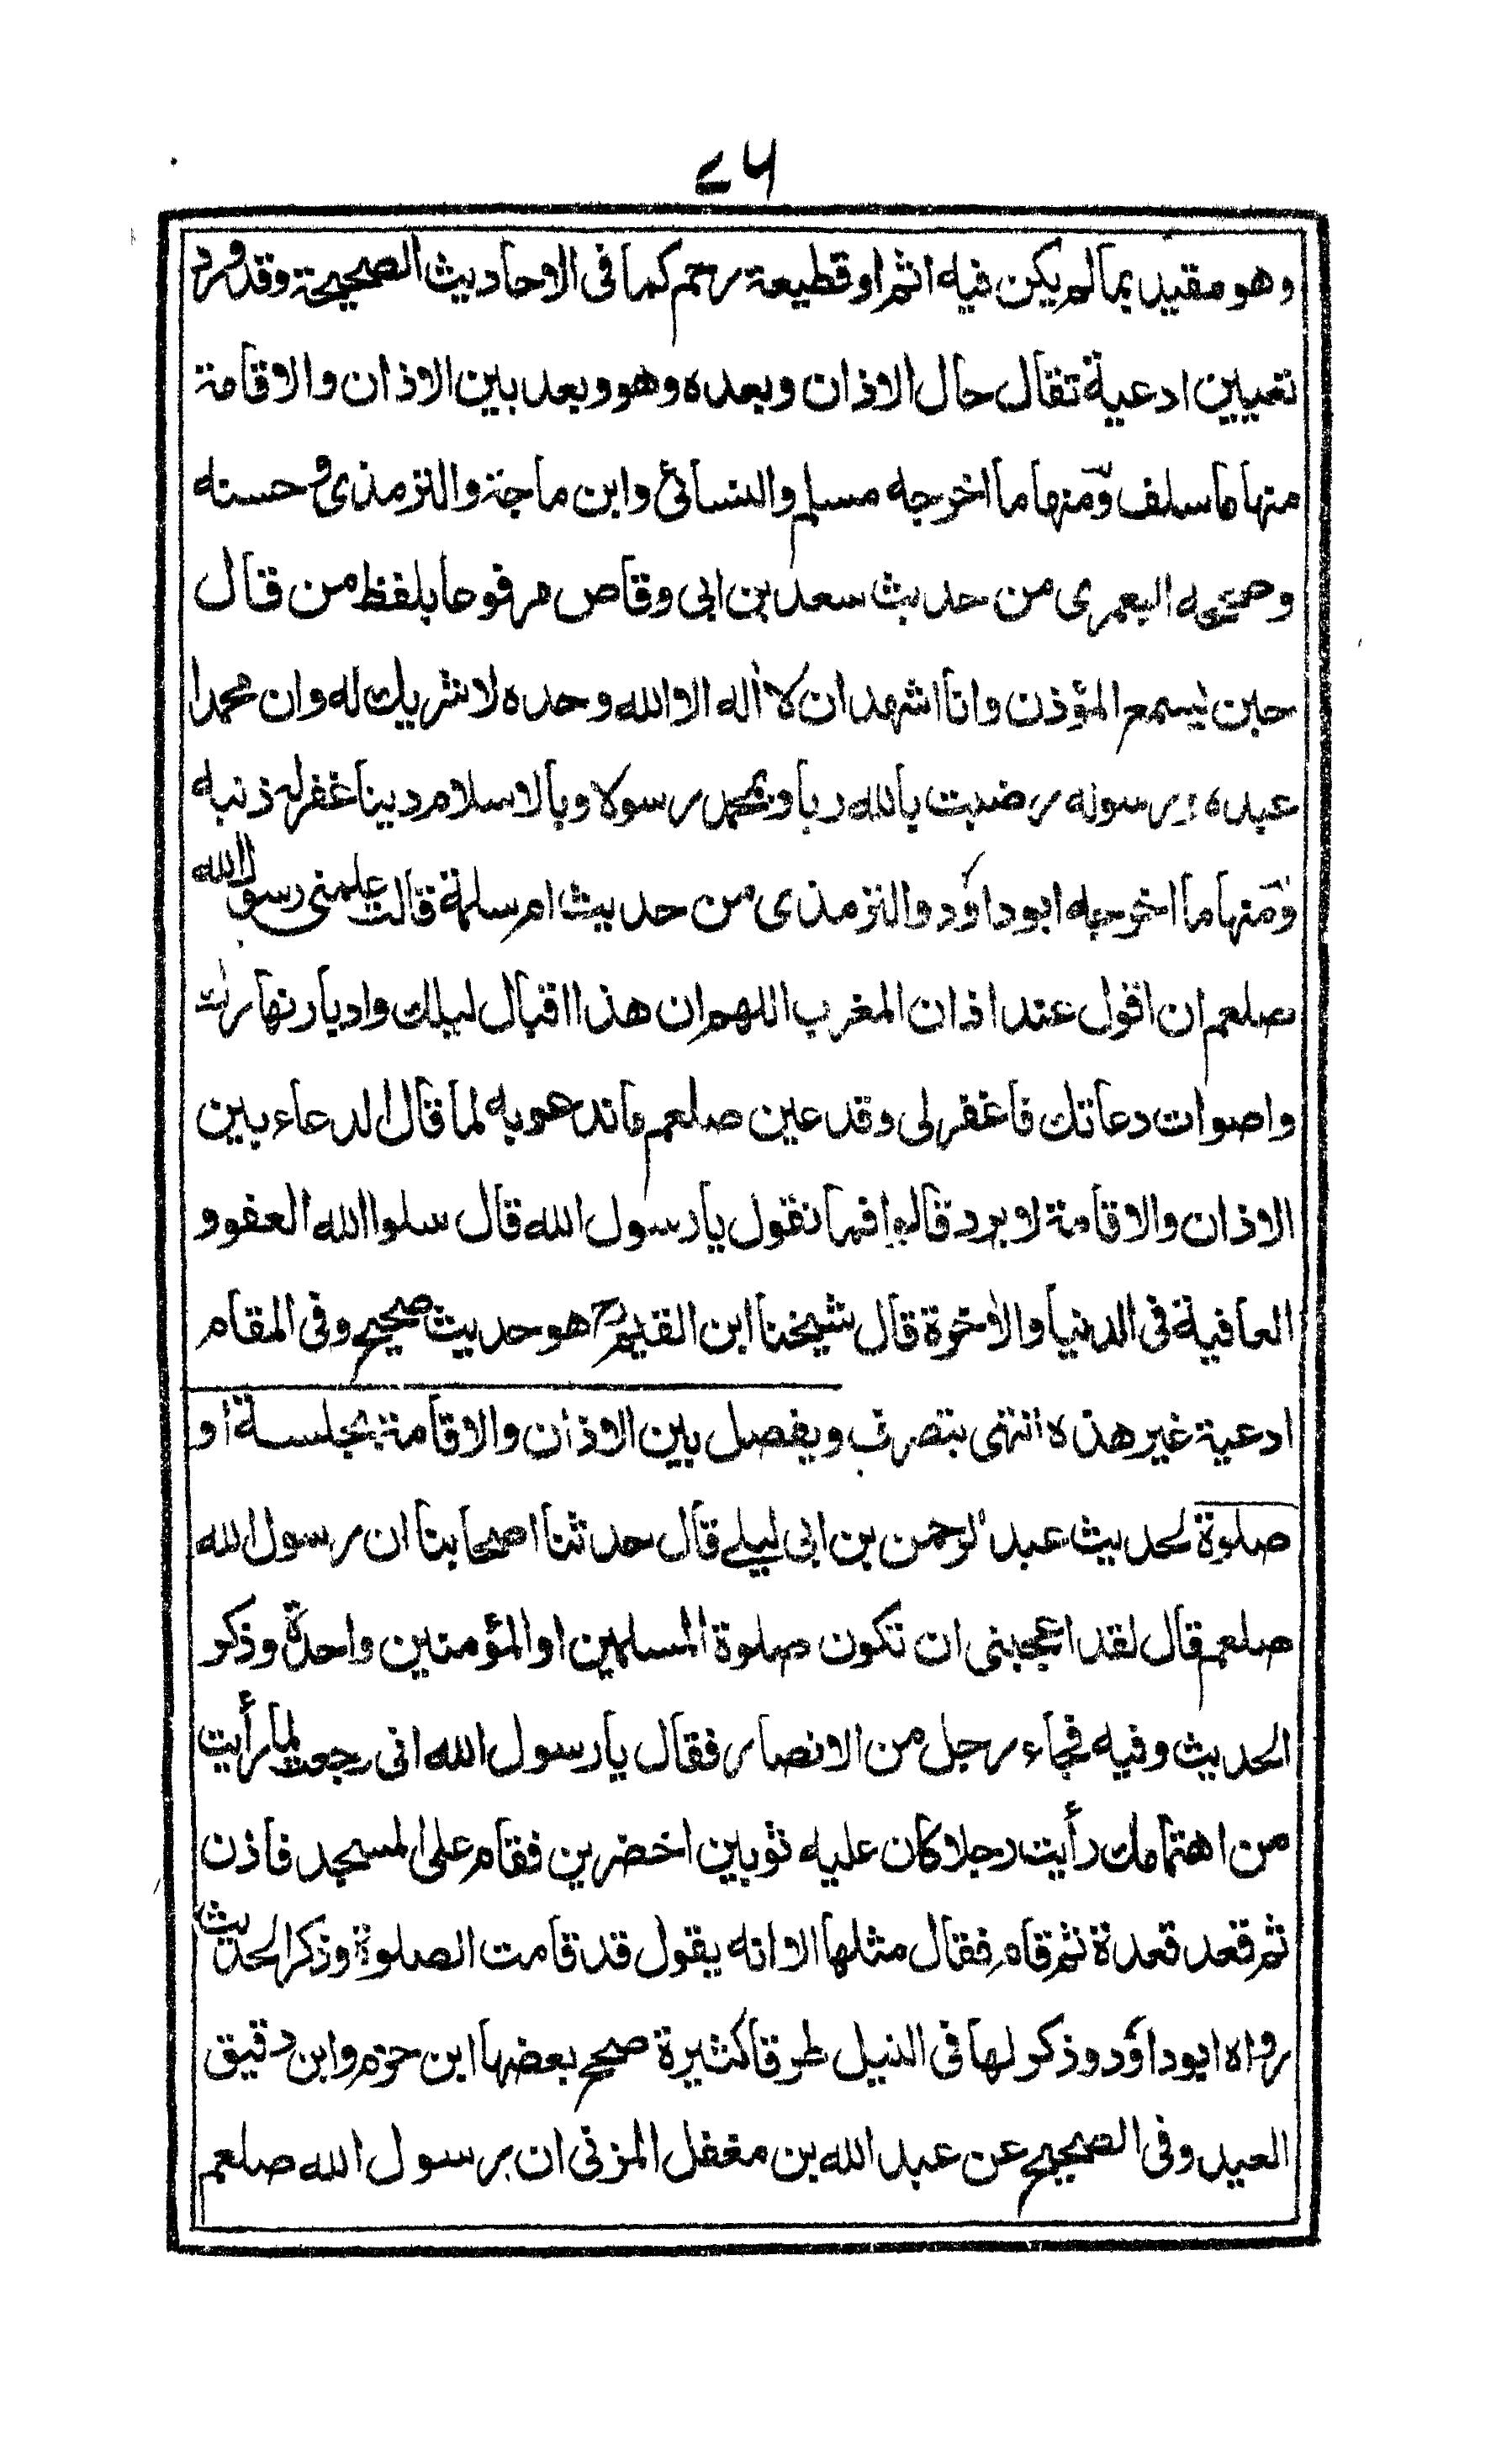 ٧٦
وهو مقيد بما لم يكن فيه اثم او قطيعة رحم كما فى الاحاديث الصحيحة وقد ورد
تعيين ادعية تقال حال الاذان وبعده وهو وبعد بين الاذان والاقامة
منها ما سلف ومنها ما اخرجه مسلم والنسائى وابن ماجة والترمذى وحسنه
وصححه اليعمرى من حديث سعد بن ابى وقاص مرفوعا بلفظ من قال
حين يسمع المؤذن وانا اشهد ان لا اله الا الله وحده لا شريك له وان محمدا
عبده ورسوله رضيت بالله ربا وبمحمد رسولا وبالاسلام دينا غفر له ذنبه
ومنها ما اخرجه ابو داؤد والترمذى من حديث ام سلمة قالت علمنى رسول الله
صلعم ان اقول عند اذان المغرب اللهم ان هذا اقبال ليلك وادبار نهارك
واصوات دعاتك فاغفر لى وقد عين صلعم ما ندعو به لما قال الدعاء بين
الاذان والاقامة لا يرد قالوا فما نقول يا رسول الله قال سلوا الله العفو و
العافية فى الدنيا والأخرة قال شيخنا ابن القيم رح هو حديث صحيح وفى المقام
ادعية غير هذه انتهى بتصرف ويفصل بين الاذان والاقامة بجلسة او
صلوة لحديث عبد الرحمن بن ابى ليلے قال حدثنا اصحابنا ان رسول الله
صلعم قال لقد اعجبنى ان تكون صلوة المسلمين او المؤمنين واحدة وذكر
الحديث وفيه فجاء رجل من الانصار فقال يا رسول الله انى رجعت لما رأيت
من اهتمامك رأيت رجلا كان عليه ثوبين اخضرين فقام على المسجد فاذن
ثم قعد قعدة ثم قام فقال مثلها الا انه يقول قد قامت الصلوة وذكر الحديث
رواه ابو داؤد وذكر لها فى النيل طرقا كثيرة صحح بعضها ابن حزم وابن دقيق
العيد وفى الصحيح عن عبد الله بن مغفل المزنى ان رسول الله صلعم